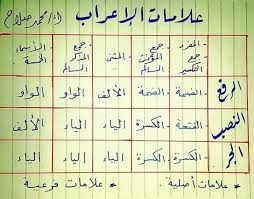 علامات الإعراب أ/ محمد صلاح
- المفرد - جمع التكسير - جمع المؤنث السالم - المثنى - جمع المذكر السالم - الأسماء الخمسة
الرفع الضمة الضمة الألف الواو الواو
النصب الفتحة الكسرة الياء الياء الألف
الجر الكسرة الكسرة الياء الياء الياء
* علامات أصلية * علامات فرعية